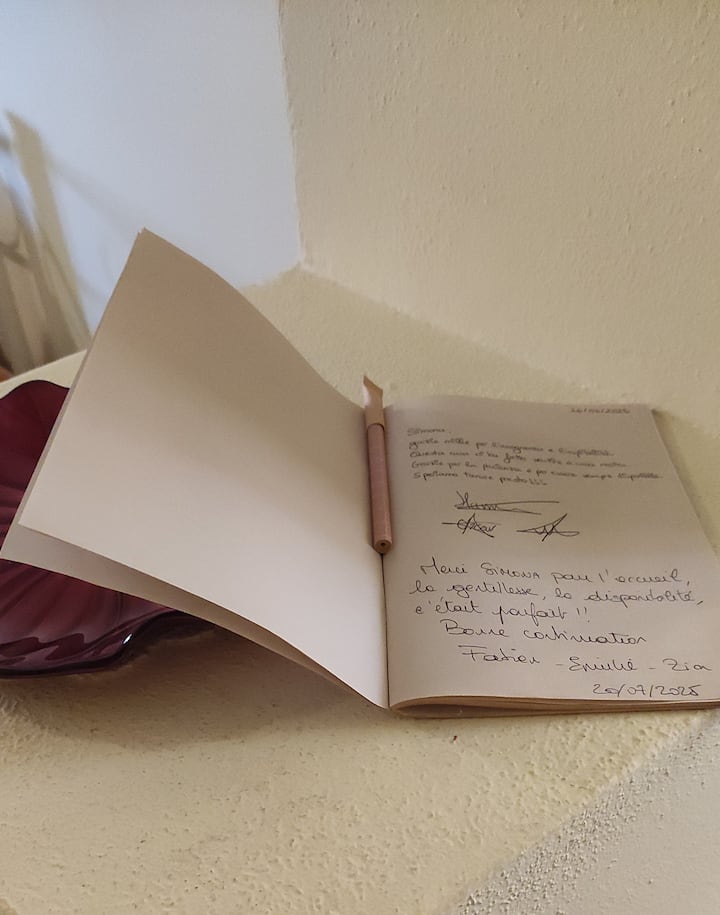 26/06/2025
Simona,
grazie mille per l'accoglienza e l'ospitalità.
Questa casa ci ha fatto sentire a casa nostra
Grazie per la pazienza e per essere sempre disponibile
Speriamo tornare presto!!!
Merci SIMONA pour l'accueil,
la gentillesse, la disponibilité,
c'était parfait !!
Bonne continuation
Fabien - - Zia
20/07/2025